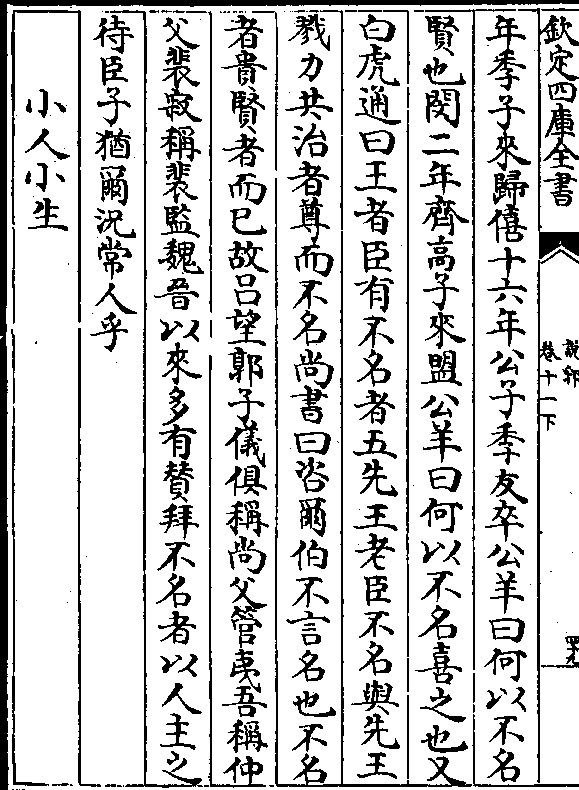 欽定四庫全書
說郛
卷十一下
年季子來歸僖十六年公子季友卒公羊曰何以不名
賢也閔二年齊高子來盟公羊曰何以不名喜之也又
白虎通曰王者臣有不名者五先王老臣不名與先王
戮力共治者尊而不名尚書曰咨爾伯不言名也不名
者貴賢者而已故呂望郭子儀俱稱尚父管夷吾稱仲
父裴寂稱裴監魏晉以來多有贊拜不名者以人主之
待臣子猶爾況常人乎
小人小生